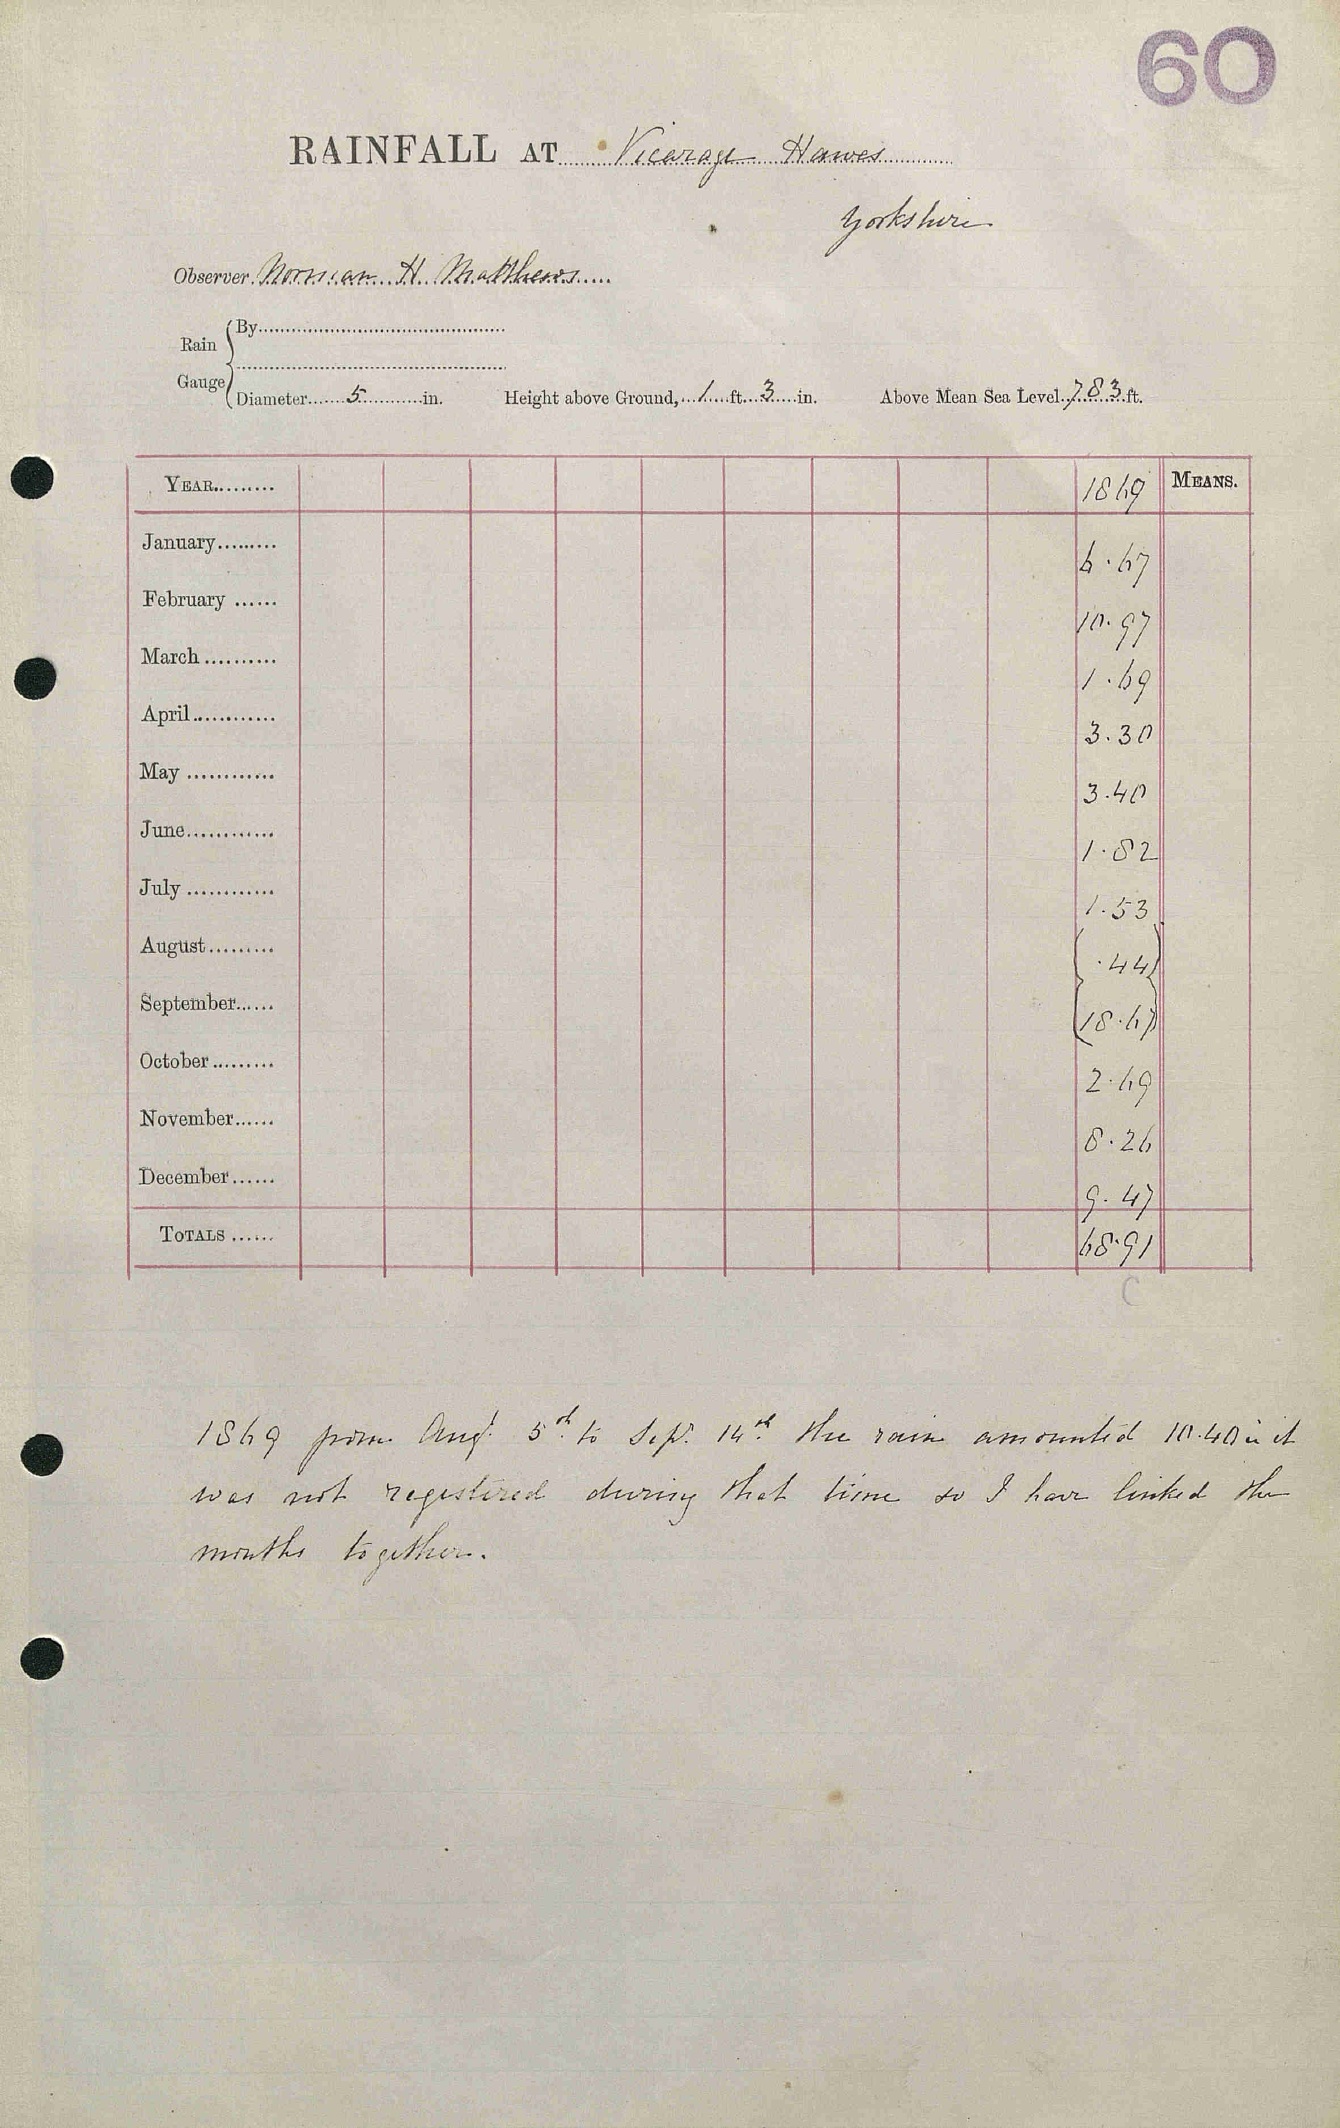 60
RAINFALL AT Vicarage Hawes
Yorkshire
Observer Norman H. Matthews
Rain Gauge { By
Diameter 5 in. Height above Ground, 1 ft. 3 in. Above Mean Sea Level 783 ft.
YEAR 1869 MEANS.
January 6.67
February 10.97
March 1.69
April 3.30
May 3.40
June 1.82
July 1.53
August .44
September 18.67
October 2.69
November 8.26
December 9.47
TOTALS 68.91
C
1869 from Augt. 5th to Sep. 14th the rain amounted 10.40 in it
was not registered during that time so I have linked the
months together.